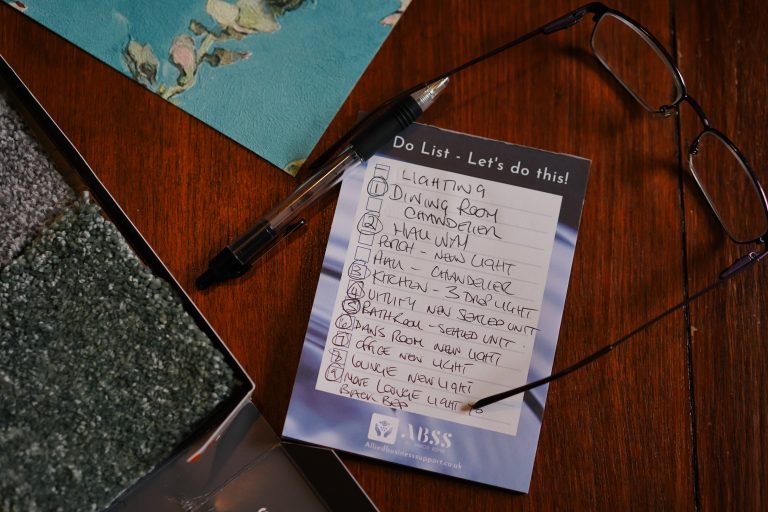 Do List - Let's do this!
LIGHTING
1 DINING ROOM
CHANDELIER
2 HALLWAY
PORCH - NEW LIGHT
HALL - CHANDELIER
3 KITCHEN - 3 DROP LIGHT
4 UTILITY NEW SEALED UNIT
5 BATHROOM - SEALED UNIT.
6 DANS ROOM NEW LIGHT
7 OFFICE NEW LIGHT
8 LOUNGE NEW LIGHT
9 MOVE LOUNGE LIGHT TO
BACK BED
ABSS
Alliedbusinesssupport.co.uk